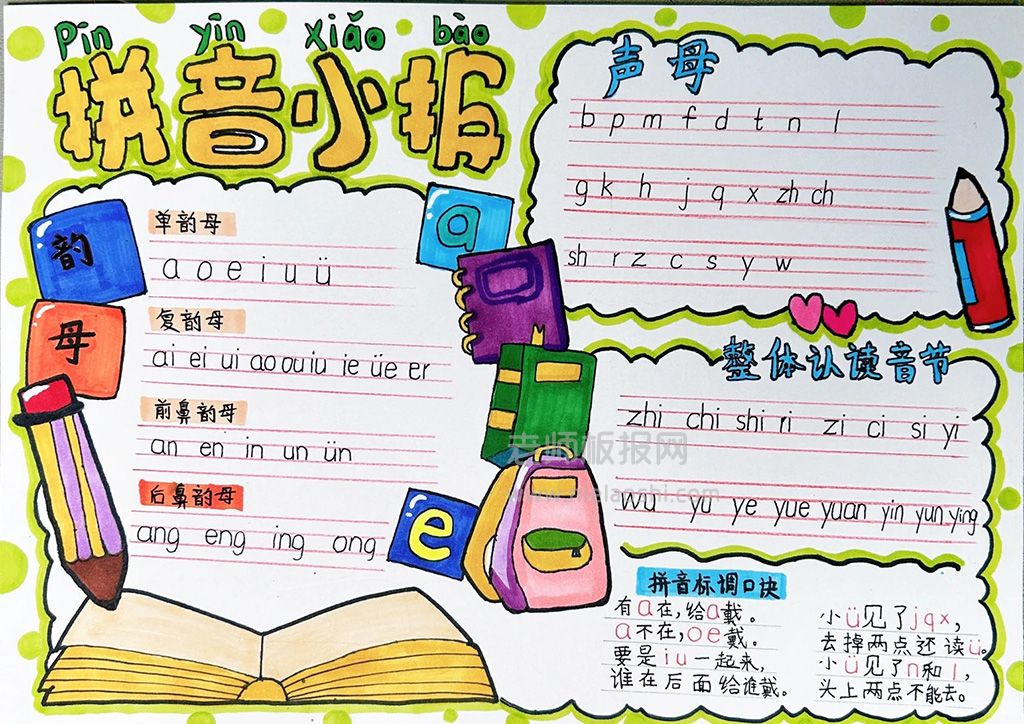 pīn yīn xiǎo bào
拼音小报
韵
母
单韵母
a o e i u ü
复韵母
ai ei ui ao ou iu ie üe er
前鼻韵母
an en in un ün
后鼻韵母
ang eng ing ong
a
e
声母
b p m f d t n l
g k h j q x zh ch
sh r z c s y w
整体认读音节
zhi chi shi ri zi ci si yi
wu yu ye yue yuan yin yun ying
拼音标调口诀
有a在,给a戴。
a不在,oe戴。
要是iu一起来,
谁在后面给谁戴。
小ü见了jqx,
去掉两点还读ü。
小ü见了n和l,
头上两点不能去。
老师板报网